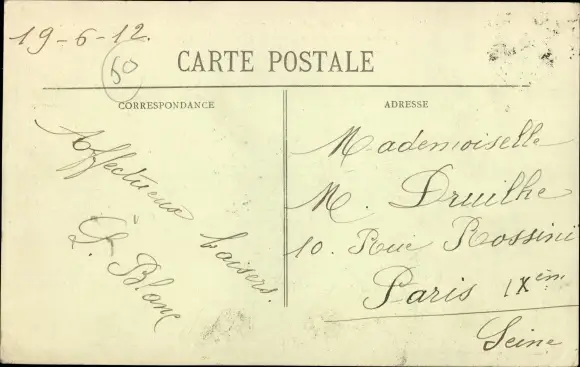 19-6-12.
50
CARTE POSTALE
CORRESPONDANCE
Affectueux baisers.
L. Blanc
ADRESSE
Mademoiselle
M. Druilhe
10. Rue Rossini
Paris IXème
Seine